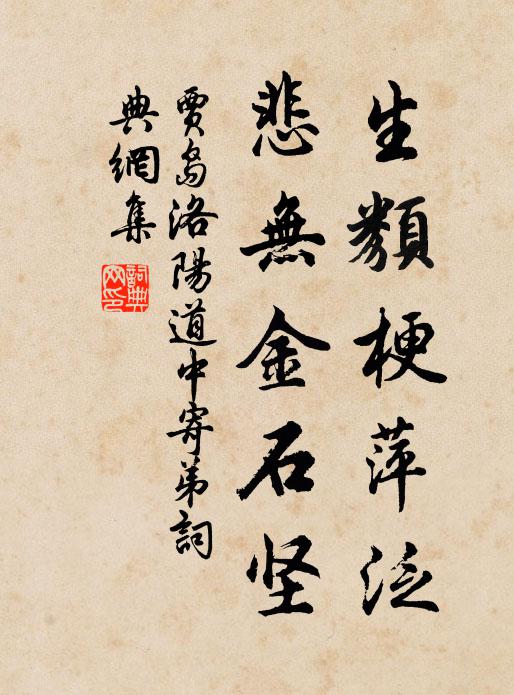 生類梗萍泛
悲無金石坚
賈島洛陽道中寄弟詞
典網集
詞典網印